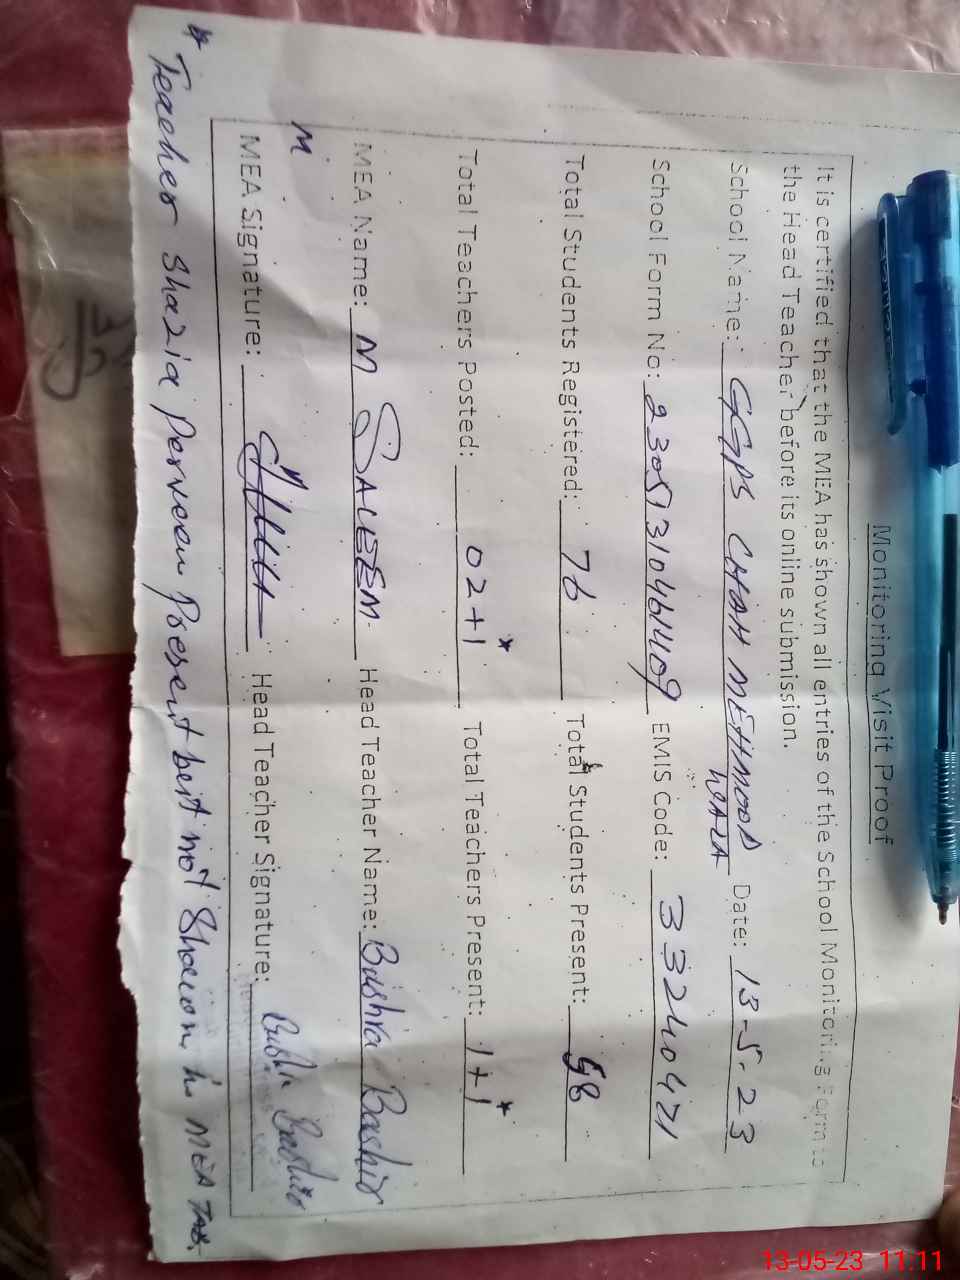 Monitoring Visit Proof
It is certified that the MEA has shown all entries of the School Monitoring Form to
the Head Teacher before its online submission.
School Name: GGPS CHAH MEHMOOD WALA Date: 13-5-23
School Form No: EMIS Code: 33240421
Total Students Registered: 76 Total Students Present: 58
Total Teachers Posted: 02+1* Total Teachers Present: 1+1*
MEA Name: M SALEEM Head Teacher Name: Bushra Bashir
M
MEA Signature: Head Teacher Signature: Bushra Bashir
* Teacher Shazia Perveen Present but not Shown in MEA Tab.
13-05-23 11.11